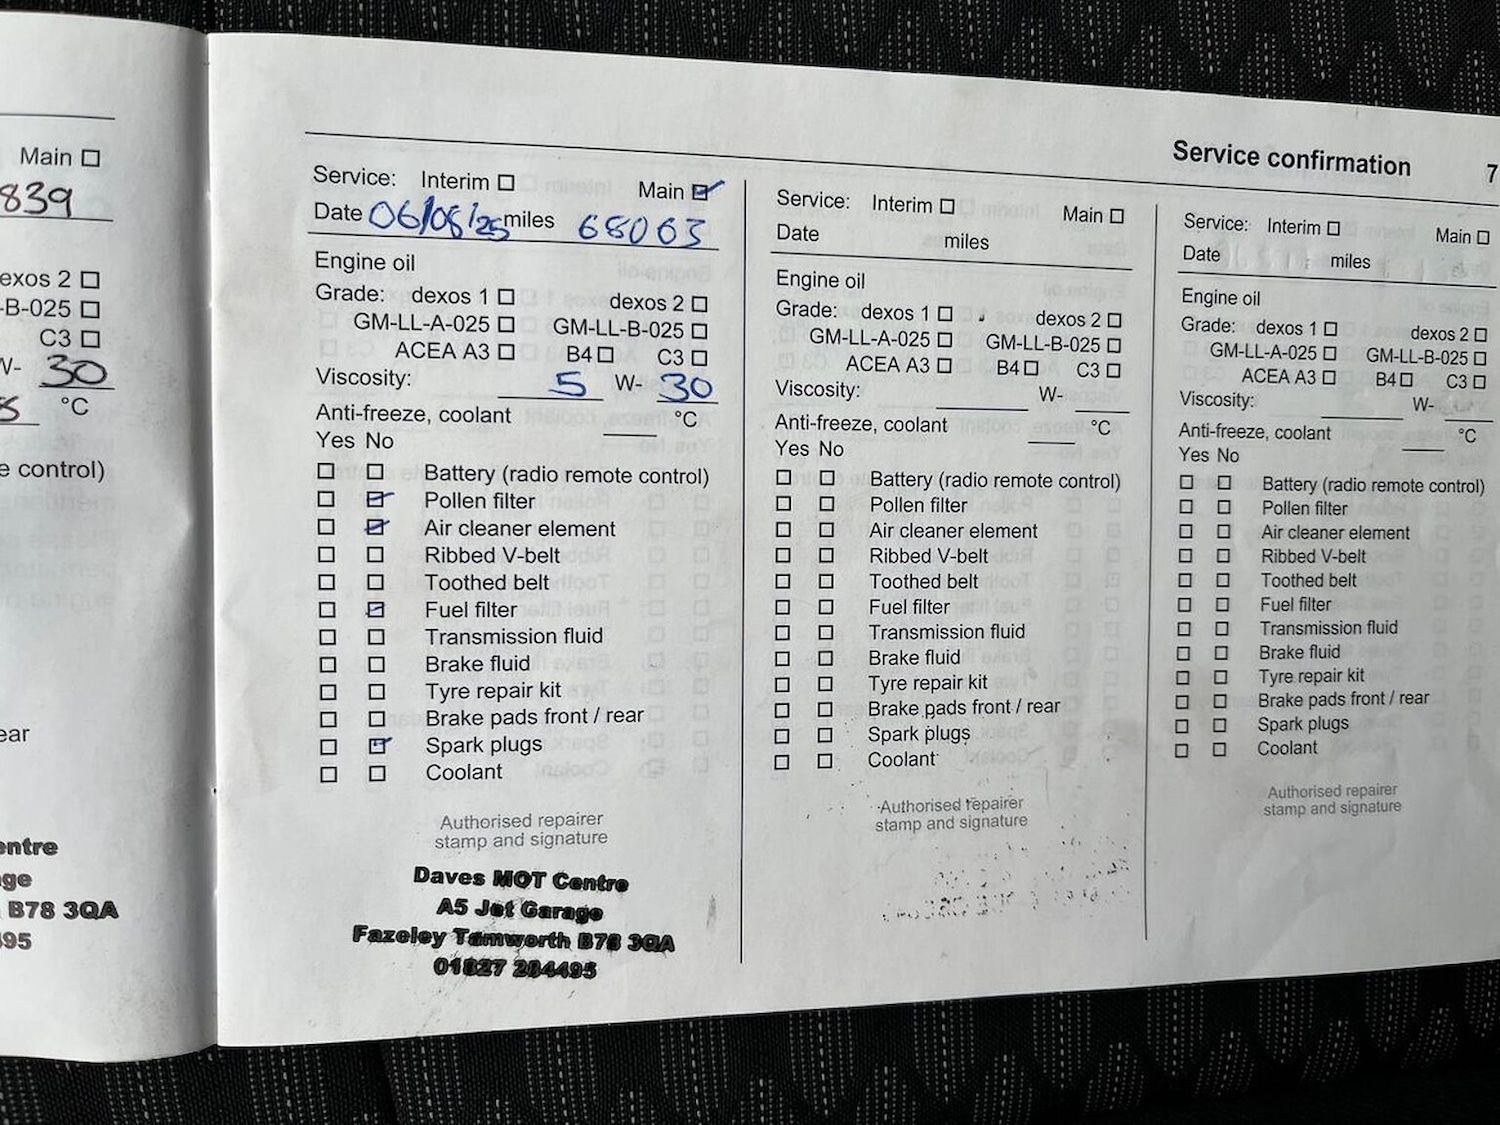 Main ☐
839
exos 2 ☐
-B-025 ☐
C3 ☐
W- 30
°C
e control)
ear
entre
ge
B78 3QA
495
Service confirmation 7
Service: Interim ☐ Main ☑
Date 06/08/25 miles 68063
Engine oil
Grade: dexos 1 ☐ dexos 2 ☐
GM-LL-A-025 ☐ GM-LL-B-025 ☐
ACEA A3 ☐ B4 ☐ C3 ☐
Viscosity: 5 W- 30
Anti-freeze, coolant °C
Yes No
☐ ☐ Battery (radio remote control)
☐ ☑ Pollen filter
☐ ☑ Air cleaner element
☐ ☐ Ribbed V-belt
☐ ☐ Toothed belt
☐ ☑ Fuel filter
☐ ☐ Transmission fluid
☐ ☐ Brake fluid
☐ ☐ Tyre repair kit
☐ ☐ Brake pads front / rear
☐ ☑ Spark plugs
☐ ☐ Coolant
Authorised repairer
stamp and signature
Daves MOT Centre
A5 Jet Garage
Fazeley Tamworth B78 3QA
01827 284495
Service: Interim ☐ Main ☐
Date miles
Engine oil
Grade: dexos 1 ☐ dexos 2 ☐
GM-LL-A-025 ☐ GM-LL-B-025 ☐
ACEA A3 ☐ B4 ☐ C3 ☐
Viscosity: W-
Anti-freeze, coolant °C
Yes No
☐ ☐ Battery (radio remote control)
☐ ☐ Pollen filter
☐ ☐ Air cleaner element
☐ ☐ Ribbed V-belt
☐ ☐ Toothed belt
☐ ☐ Fuel filter
☐ ☐ Transmission fluid
☐ ☐ Brake fluid
☐ ☐ Tyre repair kit
☐ ☐ Brake pads front / rear
☐ ☐ Spark plugs
☐ ☐ Coolant
Authorised repairer
stamp and signature
Service: Interim ☐ Main ☐
Date miles
Engine oil
Grade: dexos 1 ☐ dexos 2 ☐
GM-LL-A-025 ☐ GM-LL-B-025 ☐
ACEA A3 ☐ B4 ☐ C3 ☐
Viscosity: W-
Anti-freeze, coolant °C
Yes No
☐ ☐ Battery (radio remote control)
☐ ☐ Pollen filter
☐ ☐ Air cleaner element
☐ ☐ Ribbed V-belt
☐ ☐ Toothed belt
☐ ☐ Fuel filter
☐ ☐ Transmission fluid
☐ ☐ Brake fluid
☐ ☐ Tyre repair kit
☐ ☐ Brake pads front / rear
☐ ☐ Spark plugs
☐ ☐ Coolant
Authorised repairer
stamp and signature